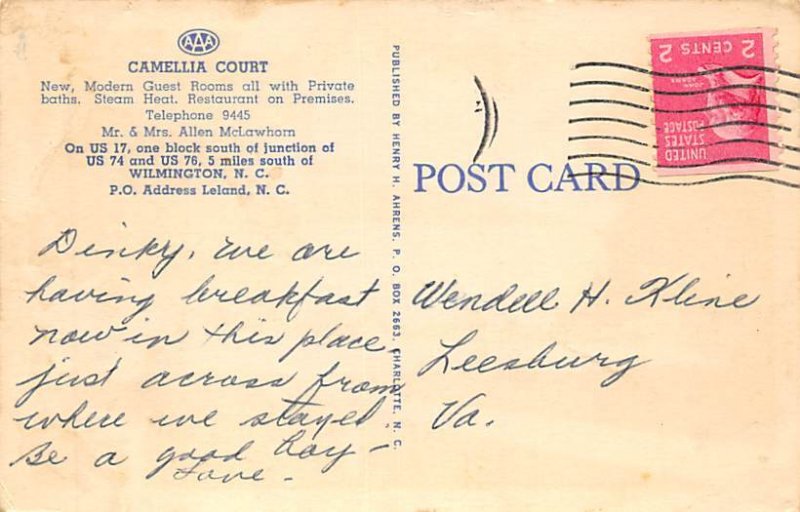 AAA
CAMELLIA COURT
New, Modern Guest Rooms all with Private
baths. Steam Heat. Restaurant on Premises.
Telephone 9445
Mr. & Mrs. Allen McLawhorn
On US 17, one block south of junction of
US 74 and US 76, 5 miles south of
WILMINGTON, N. C.
P.O. Address Leland, N. C.
Dinky, we are
having breakfast
now in this place,
just across from
where we stayed.
Be a good boy –
Love –
PUBLISHED BY HENRY H. AHRENS, P. O. BOX 2663, CHARLOTTE, N. C.
POST CARD
UNITED
STATES
POSTAGE
JOHN ADAMS
2 CENTS 2
Wendell H. Kline
Leesburg
Va.